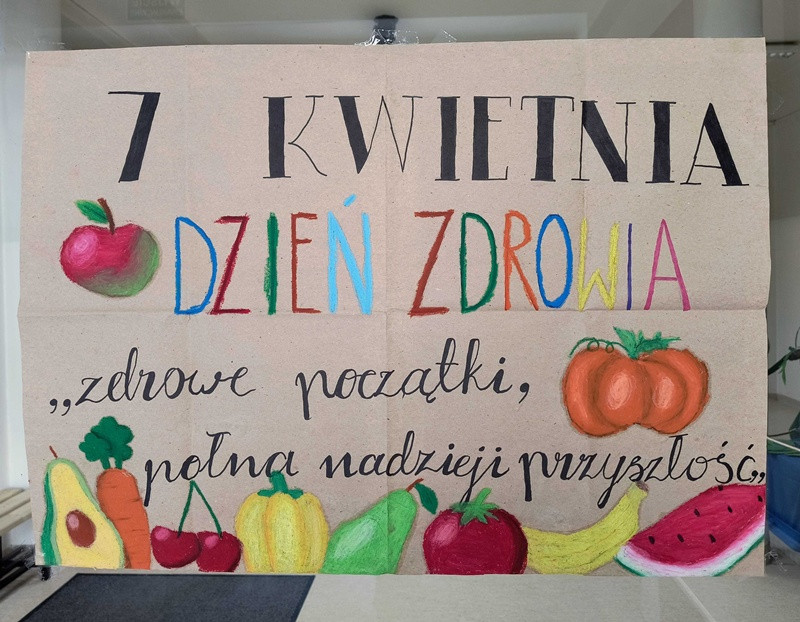 7 KWIETNIA
DZIEŃ ZDROWIA
„zdrowe początki,
połna nadzieji przyszłość"